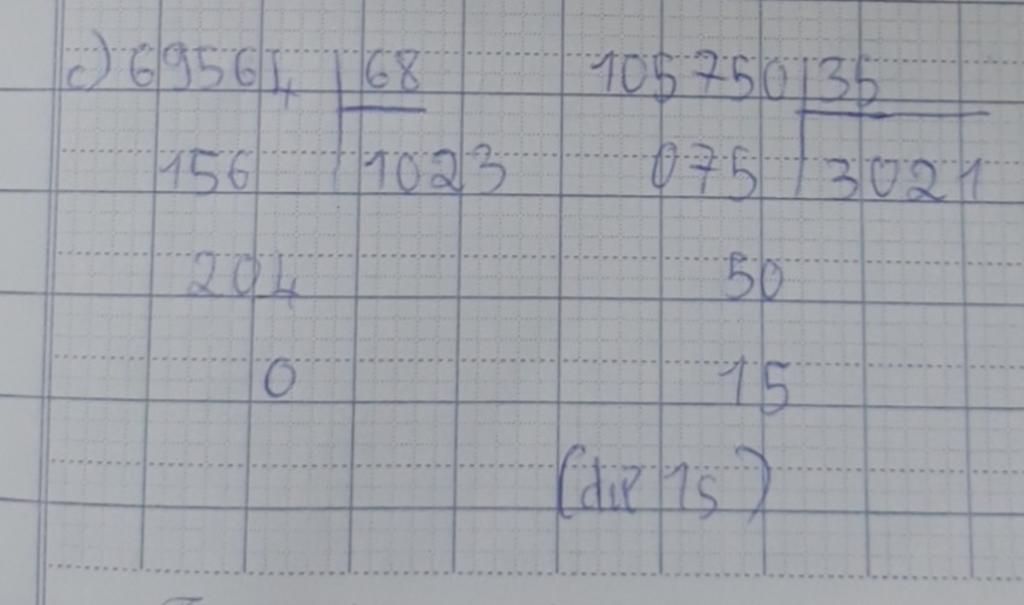 c) 69564 68 105750 35
156 1023 075 3021
204 50
0 15
(dư 15)